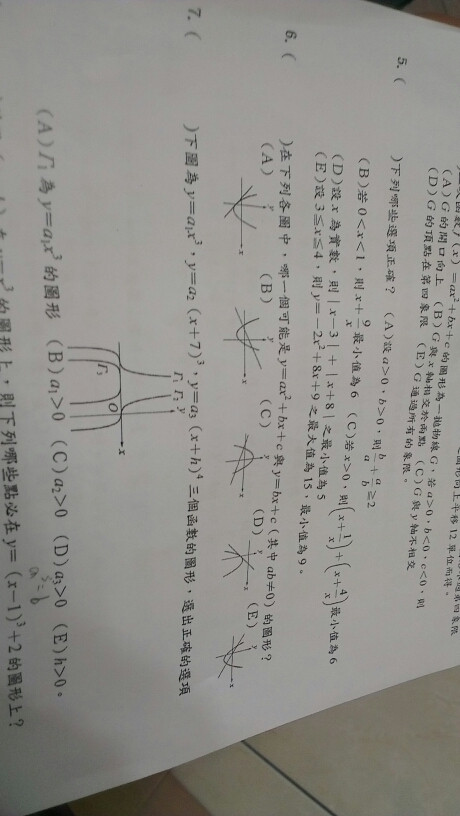 函數 f(x)=ax²+bx+c的圖形為一拋物線G。若a>0，b<0，c<0，則
(A)G的開口向上 (B)G與x軸相交於兩點 (C)G與y軸不相交
(D)G的頂點在第四象限 (E)G通過所有的象限。
5. (　)下列哪些選項正確？ (A)設a>0，b>0，則 b/a + a/b ≧2
(B)若0<x<1，則x+9/x 最小值為6 (C)若x>0，則(x+1/x)+(x+4/x)最小值為6
(D)設x為實數，則|x-3|+|x+8|之最小值為5
(E)設3≦x≦4，則y=-2x²+8x+9之最大值為15，最小值為9。
6. (　)在下列各圖中，哪一個可能是y=ax²+bx+c與y=bx+c(其中ab≠0)的圖形？
(A) (B) (C) (D) (E)
y x y x y x y x y x
7. (　)下圖為y=a₁x³，y=a₂(x+7)³，y=a₃(x+h)⁴三個函數的圖形，選出正確的選項
Γ₁ Γ₂ y
Γ₃ O x
(A)Γ₁為y=a₁x³的圖形 (B)a₁>0 (C)a₂>0 (D)a₃>0 (E)h>0。
的圖形上，則下列哪些點必在y=(x-1)³+2的圖形上？